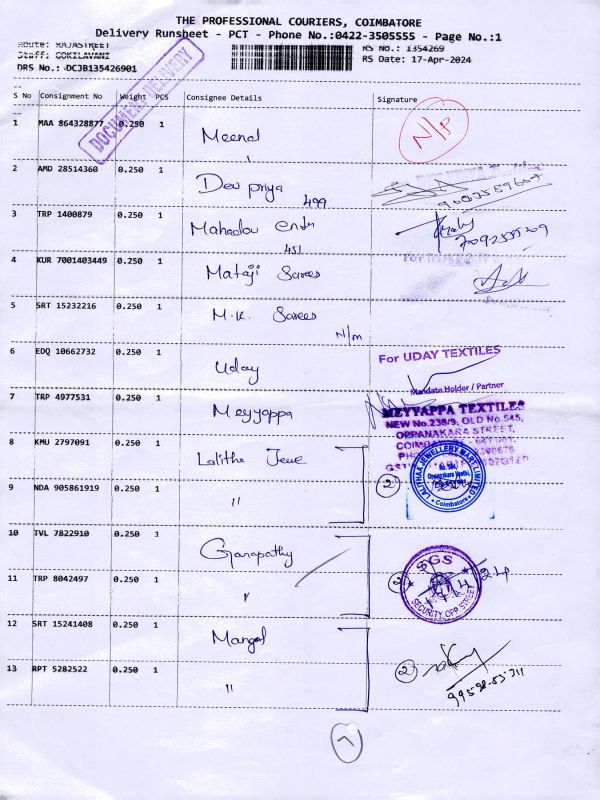 THE PROFESSIONAL COURIERS, COIMBATORE
Delivery Runsheet - PCT - Phone No.:0422-3505555 - Page No.:1
Route: RAJASTREET RS No.: 1354269
Staff: GOKILAVANI RS Date: 17-Apr-2024
DRS No.: DCJB135426901
DOCUMENT DELIVERY
S No Consignment No Weight PCS Consignee Details Signature
1 MAA 864328877 0.250 1 Meenal N/P
2 AMD 28514360 0.250 1 Devi priya
499
3 TRP 1400879 0.250 1 Mahadev
451
4 KUR 7001403449 0.250 1 Mataji Sarees
5 SRT 15232216 0.250 1 M.K. Sarees
N/m
6 EDQ 10662732 0.250 1 Uday For UDAY TEXTILES
Mandate Holder / Partner
7 TRP 4977531 0.250 1 Meyyappa MEYYAPPA TEXTILES
NEW No.238/9, OLD No.545,
OPPANAKARA STREET,
8 KMU 2797091 0.250 1 Lalitha
LALITHAA JEWELLERY MART LIMITED
Coimbatore
9 NDA 905861919 0.250 1 " 2
10 TVL 7822910 0.250 1 Ganapathy
SGS
SECURITY OPP STREET
11 TRP 8042497 0.250 1 " 2 24
12 SRT 15241408 0.250 1 Mangal
13 RPT 5282522 0.250 1 " 2